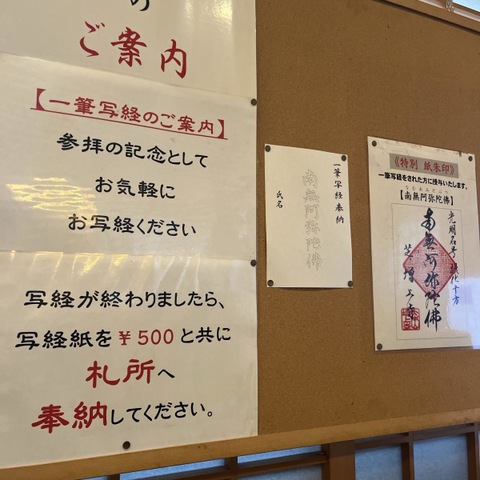 の
ご案内
【一筆写経のご案内】
参拝の記念として
お気軽に
お写経ください
写経が終わりましたら、
写経紙を¥500と共に
札所へ
奉納してください。
一筆写経奉納
南無阿弥陀佛
氏名
《特別 紙朱印》
一筆写経をされた方に授与いたします。
なむあみだぶつ
【南無阿弥陀佛】
光明名号 摂化十方
南無阿弥陀佛